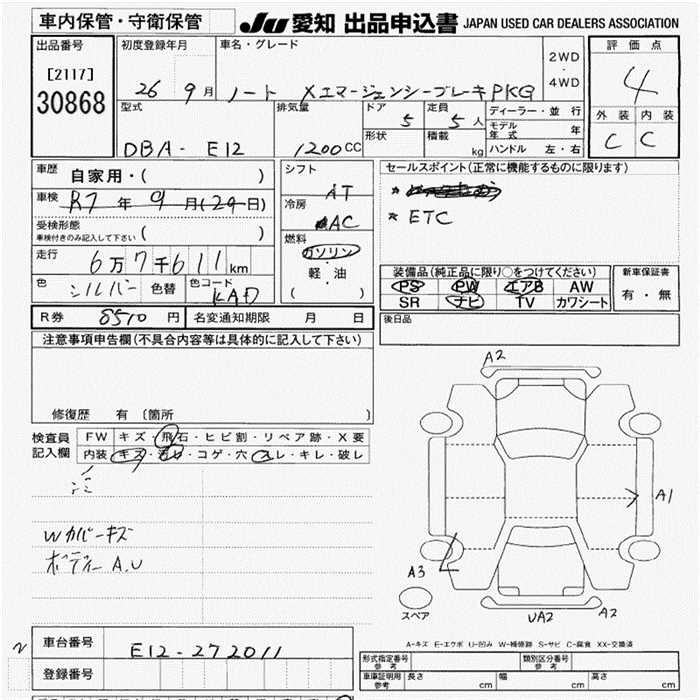 車内保管・守衛保管
JU 愛知 出品申込書 JAPAN USED CAR DEALERS ASSOCIATION
出品番号
[2117]
30868
初度登録年月
26 9月
車名・グレード
ノート XエマージェンシーブレーキPKG
2WD
・
4WD
評価点
4
外装 内装
C C
型式
DBA - E12
排気量
1200CC
ドア
5
形状
定員
5人
積載
kg
ディーラー・並行
モデル年式 年
ハンドル 左・右
車歴
自家用・( )
車検
R7年9月(29日)
受検形態
車検付きのみ記入して下さい ( )
走行
6万7千611km
色
シルバー
色替
色コード
KAD
シフト
AT
冷房
AC
燃料
ガソリン
・
軽・油
( )
セールスポイント(正常に機能するものに限ります)
* ETC
装備品(純正品に限り○をつけてください)
PS PW エアB AW
SR ナビ TV カワシート
新車保証書
有・無
R券 8510円
名変通知期限 月 日
後日品
注意事項申告欄(不具合内容等は具体的に記入して下さい)
修復歴 有〔箇所 〕
検査員
記入欄
FW キズ・飛石・ヒビ割・リペア跡・X要
内装 キズ・汚レ・コゲ・穴・スレ・キレ・破レ
Wカバーキズ
ボディー A.U
A2
A1
A3
スペア
UA2
A2
A-キズ E-エクボ U-凹み W-補修跡 S-サビ C-腐食 XX-交換済
車台番号
E12-272011
登録番号
形式指定番号
参考
類別区分番号
参考
車庫証明用
参考
長さ cm
幅 cm
高さ cm